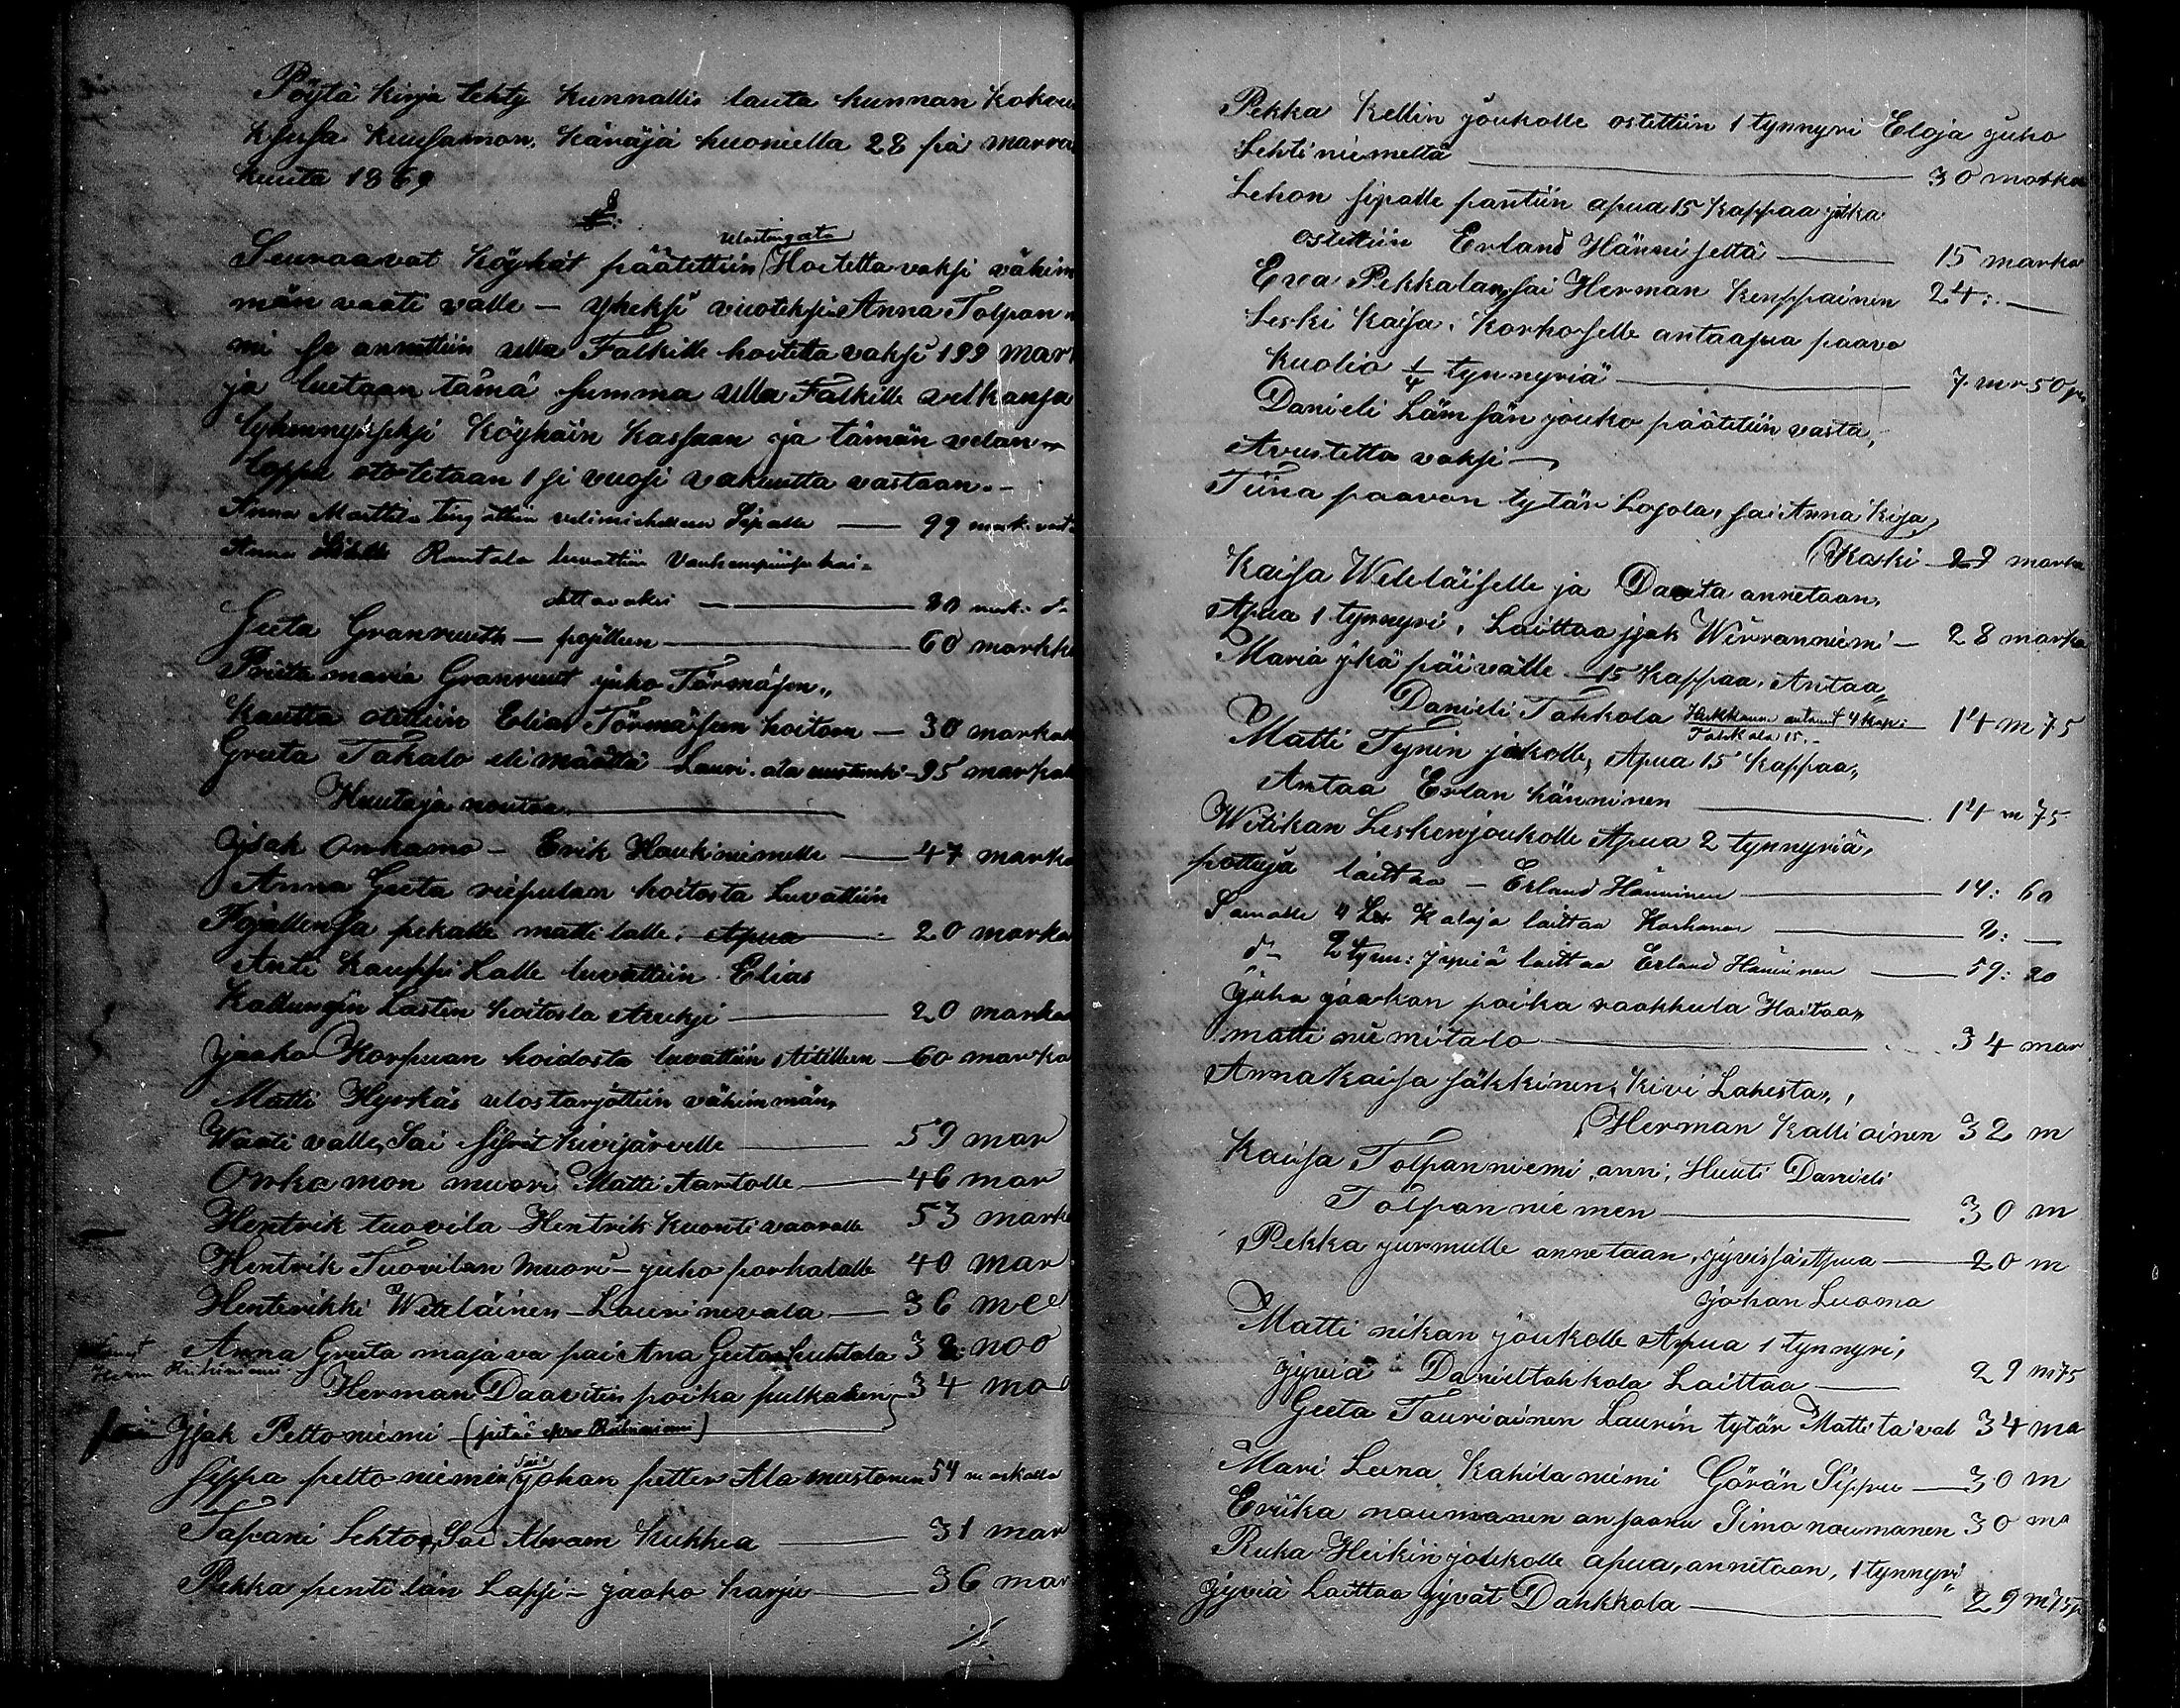 Pöytä kirja tehty kunnallis lauta kunnan kokou
ksesa kuusamon käräjä huoniella 28 pä marra
kuuta 1869
§
ulostingata
Seuraavat köyhät päätettiin Hoitettavaksi vähim
män vaati valle - yheksi vuoteksi Anna Tolpan
mi se annettiin ulla Falkille hoitettavaksi 199 mar
ja luetaan tämä summa Ulla Falkille velkansa
lyhennyiseksi köyhäin kassaan ja tämän velan
loppu ototetaan 1 si vuosi vakuutta vastaan. -
Anna Mattila ting ottiin velimiehellen Sipalle — 99 mark
Anna Rantala luvattiin Vanhempiinsa hoi-
dettavaksi — 20 mark
Greta Granruth - pojilleen — 60 markk
Priita maria Granruut juho Törmäsen
kautta otettiin Elias Törmäsen hoitoon — 30 marka
Greta Takalo eli määttä Lauri ala mustonki - 95 marka
Huutaja noutaa
Isak Onkamo - Erik Haukiniemelle — 47 marka
Anna Greta riipulan hoitosta Luvattiin
Pojallensa pekalle mattilalle. Apua — 20 marka
Anti Kauppilalle luvattiin Elias
Kallungin Lasten hoitosta Avuksi — 20 marka
Jaako Korpuan hoidosta luvattiin Aitilleen — 60 marka
Matti Hyrkäs ulos tarjottiin vähimmän
Waati valle, Sai Sipit kivijärvelle — 59 mar
Onkamon muori Matti Aartolle — 46 mar
Hentrik tuovila Hentrik kuontivaaralle 53 mark
Hentrik Tuovilan muori - juho porkalalle 40 mar
Henterikki Weteläinen - Lauri nevala — 36 me
Anna Greta majava sai Ana Greta huhtala 32 moo
Herman Daavitin poika pulkalieni — 34 ma
Isak Peltoniemi
Sippa peltoniemin sai Johan petter Ala mustonen 54 markalla
Tapani Lehto, Sai Abram kukkea — 31 mar
Pekka penti län Lapsi - jaako harju — 36 mar
Pekka Kellin joukolle ostettiin 1 tynnyri Eloja juho
Lehtiniemeltä — 30 marka
Lehon sipalle pantiin apua 15 kappaa jotka
ostettiin Erland Hänniseltä — 15 marka
Eva Pekkalan, sai Herman kenppainen 24: —
Leski Kaisa Korhoselle antaapua paavo
kuolio 1/4 tynnyriä — 7 mr 50 p
Danieli Lämsän jouko päätettiin vasta,
Avustetta vaksi —
Tiina paavon tytär Lojola, sai Anna kisa,
Koski — 29 marka
Kaisa Weteläiselle ja Daavta annetaan,
Apua 1 tynnyri, Laittaa jsak Wirranniemi — 28 marka
Maria ikä päivälle — 15 kappaa. Antaa,,
Danieli Tahkola 14 m 75
Matti Tynin jokolle, Apua 15 kappaa,,
Antaa Erlan hänninen — 14 m 75
Witikan Leskenjoukolle Apua 2 tynnyriä,
pottuja laittaa - Erland Hänninen — 14: 60
Samalle 4 L Kaloja laittaa Korhonen — 8: —
d— 2 tynn: Jyviä laittaa Erland Hänninen — 59: 20
Juho jaakon poika vaakkula Hoitaa,,
matti niemitalo — 34 mar
Anna kaisa säkkinen, kivi Lahesta,,
Herman Kallioinen 32 m
Kaisa Tolpanniemi, ann; Huuti Danieli
Tolpanniemen — 30 m
Pekka jurmulle annetaan, jyvissä Apua — 20 m
Johan Luoma
Matti nikan joukolle Apua 1 tynnyri,
jyviä - Daniel tahkola Laittaa — 29 m 75
Greta Tauriainen Laurin tytär Matti taival 34 ma
Mari Leena Kahilaniemi Görän Sippu — 30 m
Eriika naumanen an saanu Simo naumanen 30 m
Ruka Heikin jokolle apua, annetaan, 1 tynnyri,,
jyviä Laittaa jyvät Dahkkola — 29 m 75 p